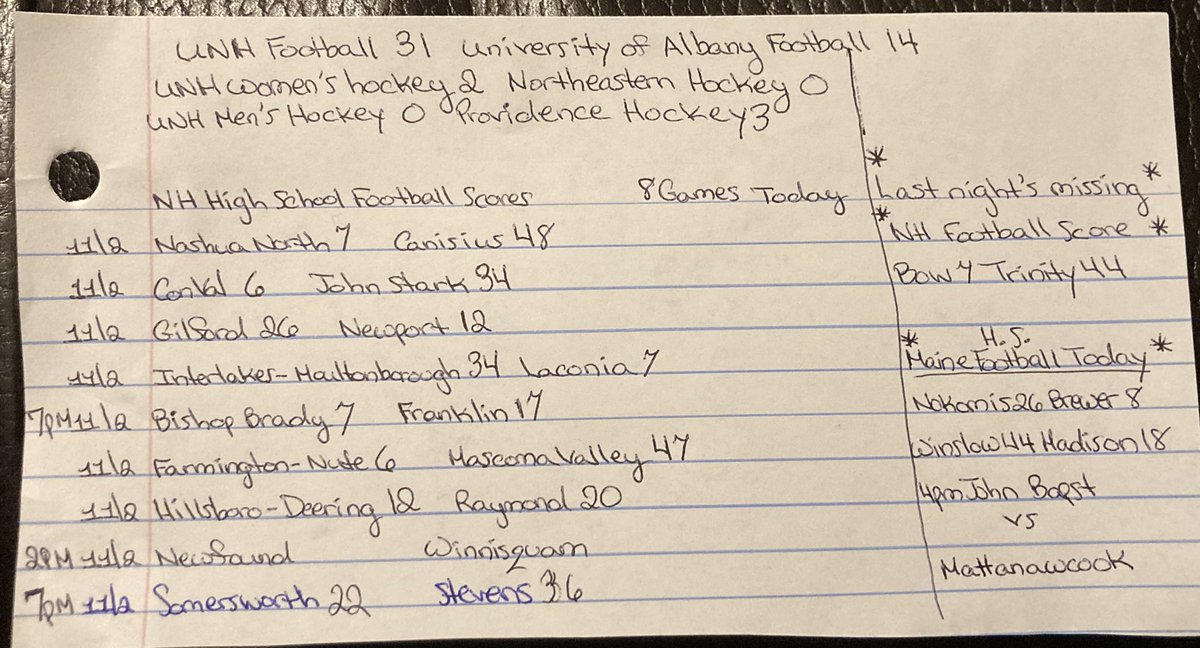 UNH Football 31 University of Albany Football 14
UNH Women's hockey 2 Northeastern Hockey 0
UNH Men's Hockey 0 Providence Hockey 3
NH High School Football Scores 8 Games Today
11/2 Nashua North 7 Canisius 48
11/2 ConVal 6 John Stark 34
11/2 Gilford 26 Newport 12
11/2 Interlakes-Moultonborough 34 Laconia 7
7PM 11/2 Bishop Brady 7 Franklin 17
11/2 Farmington-Nute 6 Mascoma Valley 47
11/2 Hillsboro-Deering 12 Raymond 20
2PM 11/2 Newfound Winnisquam
7PM 11/2 Somersworth 22 Stevens 36
*
Last night's missing *
* NH Football Score *
Bow 7 Trinity 44
* H.S. *
Maine Football Today
Nokomis 26 Brewer 8
Winslow 44 Madison 18
4pm John Bapst
vs
Mattanawcook